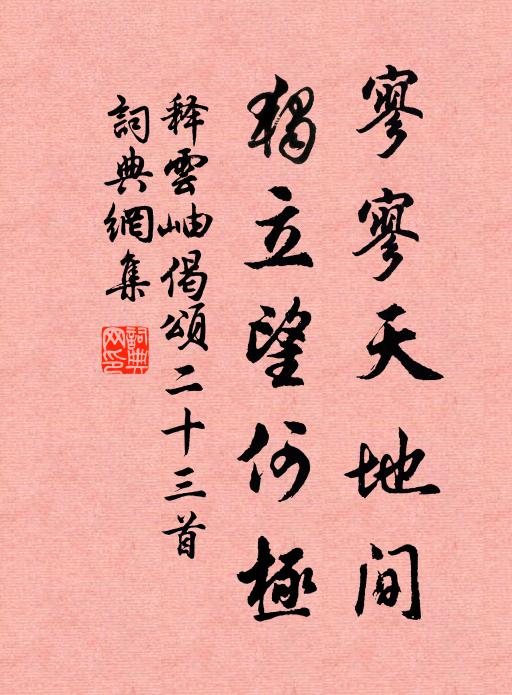 寥寥天地间
獨立望何極
释雲岫偈頌二十三首
詞典網集
詞典网印